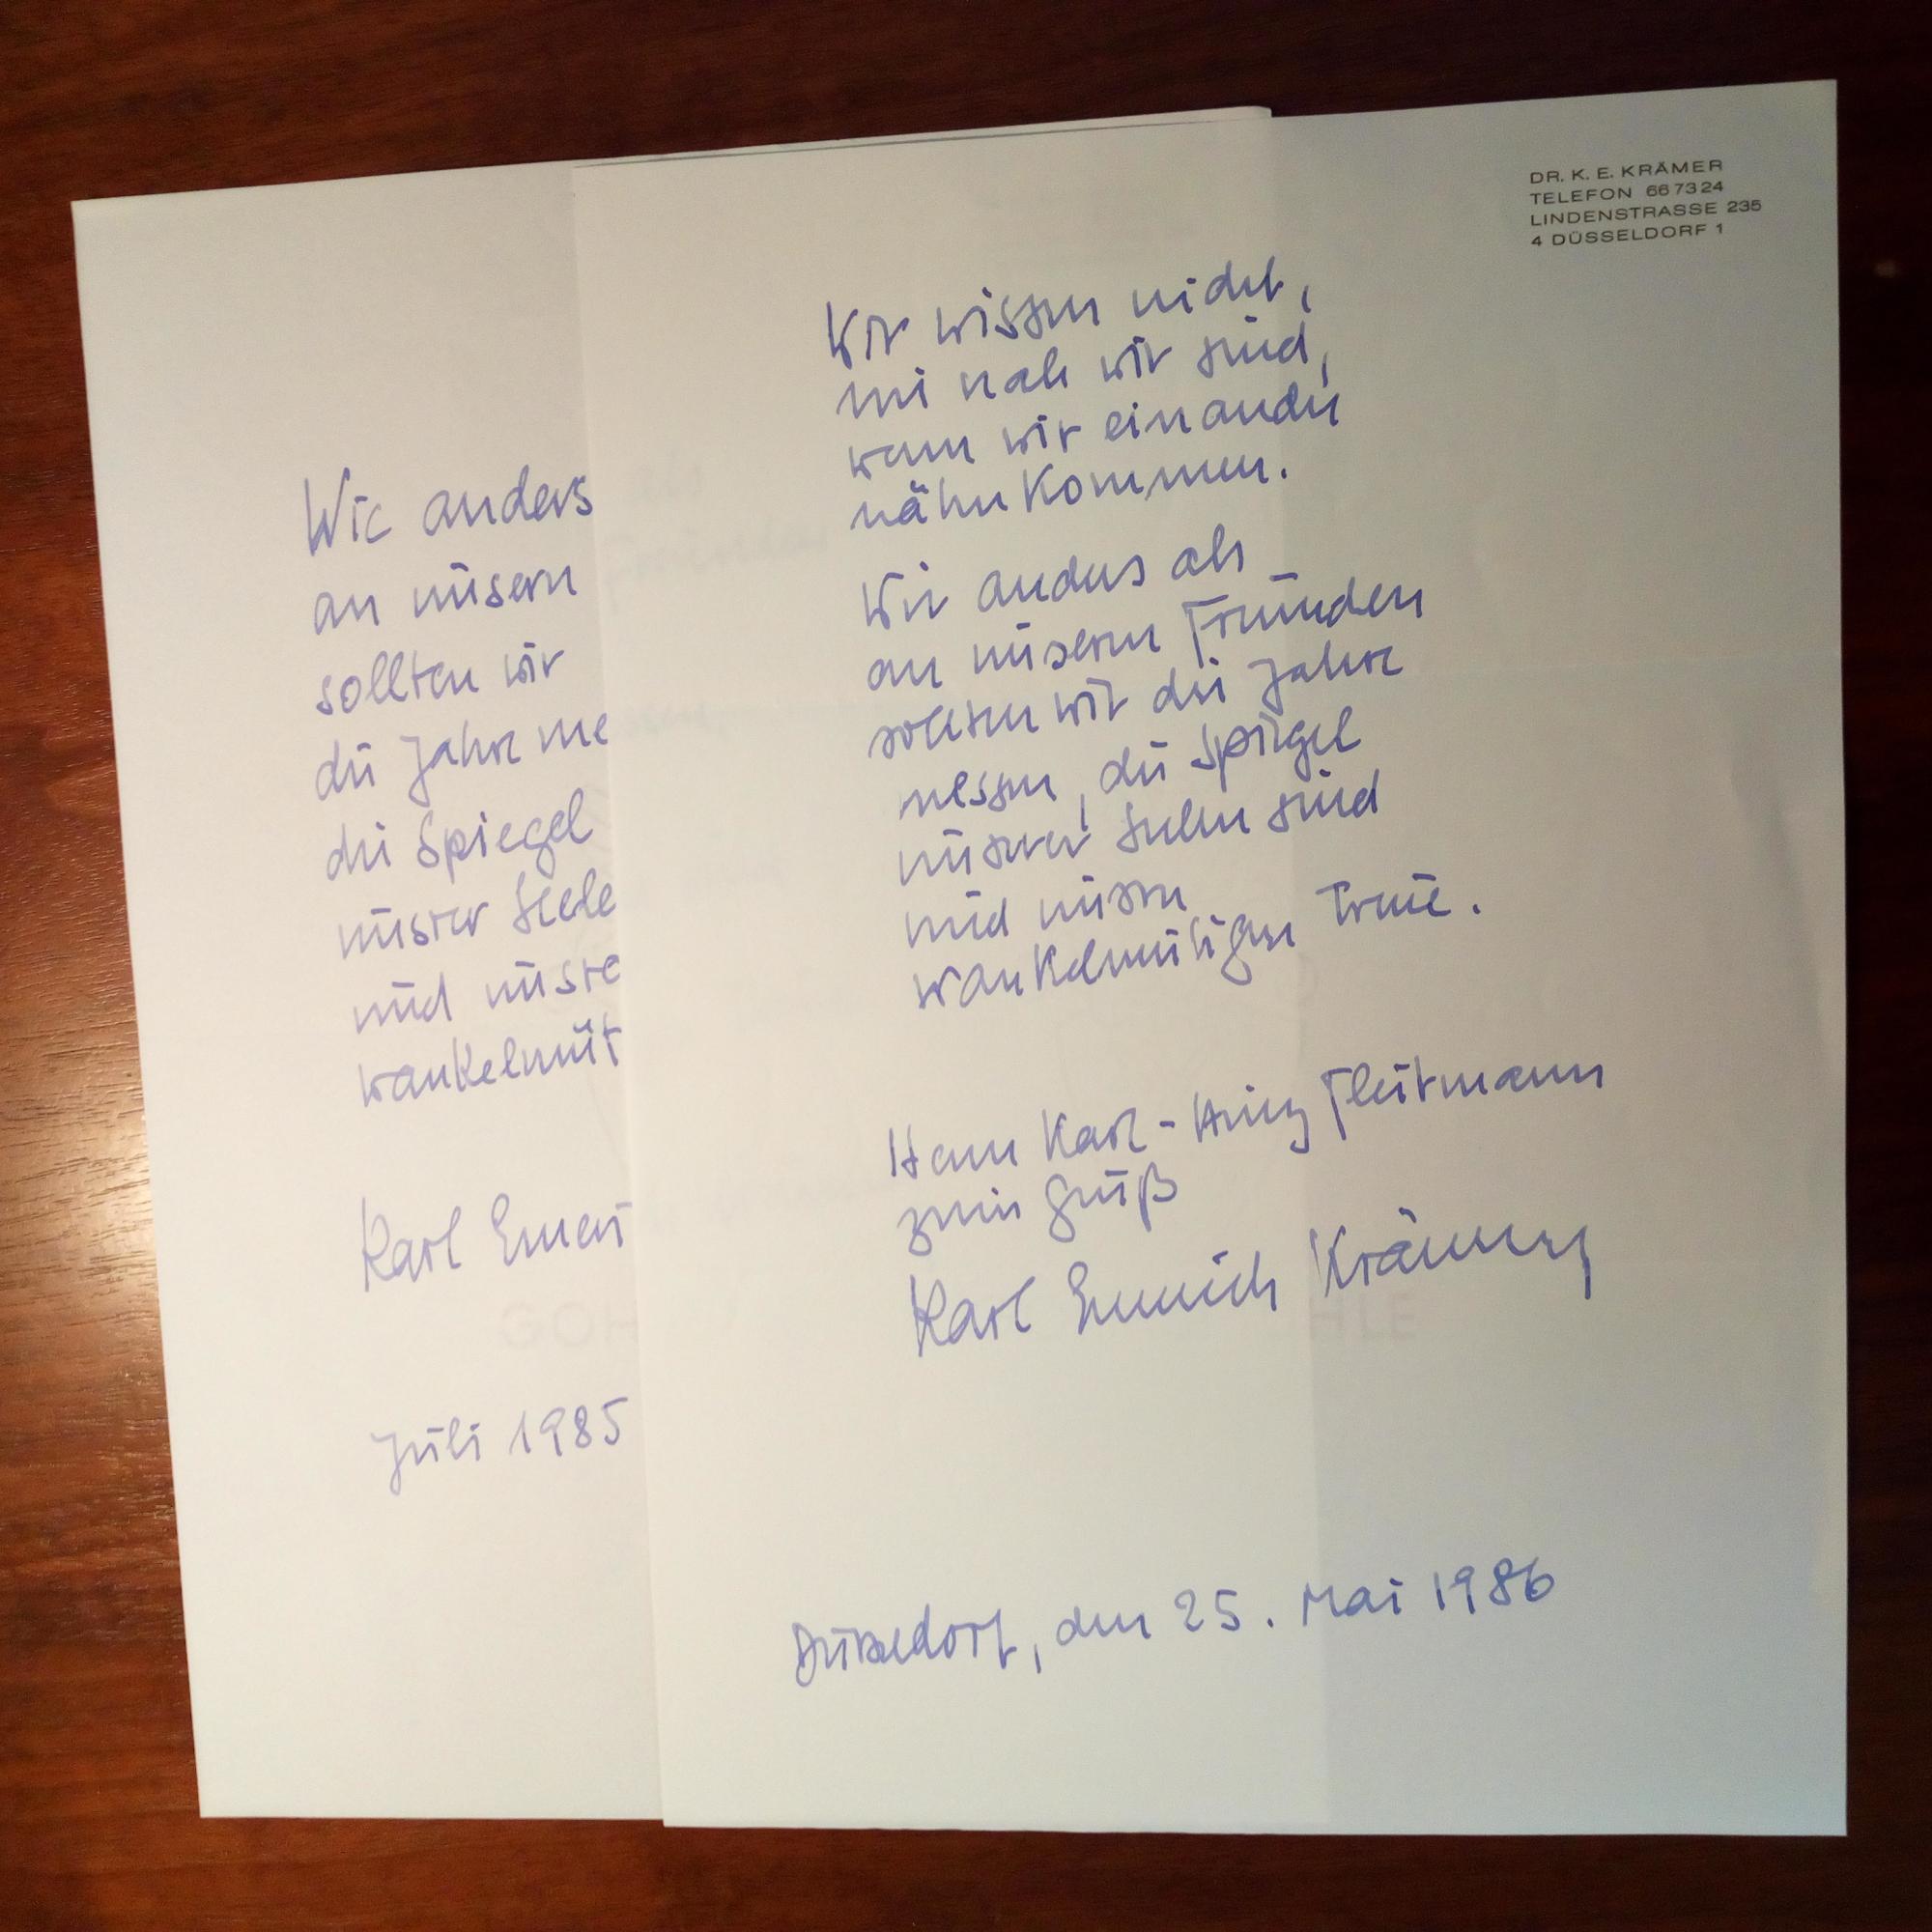 Wie anders
an unsern
sollten wir
die Jahre me
die Spiegel
unsrer Seele
und unsre
wankelmüt
Karl Emeri
Juli 1985
GOH
DR. K. E. KRÄMER
TELEFON 667324
LINDENSTRASSE 235
4 DÜSSELDORF 1
Wir wissen nicht,
wie nah wir sind,
wenn wir einander
näher kommen.
Wie anders als
an unseren Freunden
sollten wir die Jahre
messen, die Spiegel
unserer Seelen sind
und unsrer
wankelmütigen Treue.
Herrn Karl-Heinz Fleitmann
zum Gruß
Karl Emerich Krämer
HLE
Düsseldorf, den 25. Mai 1986